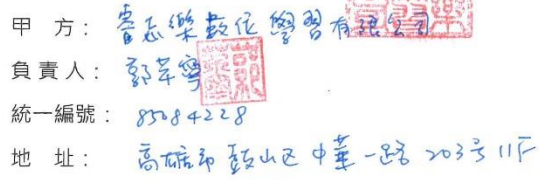 甲 方：睿志樂數位學習有限公司
負責人：郭芊寧
統一編號：85084228
地 址：高雄市鼓山區中華一路203号11F